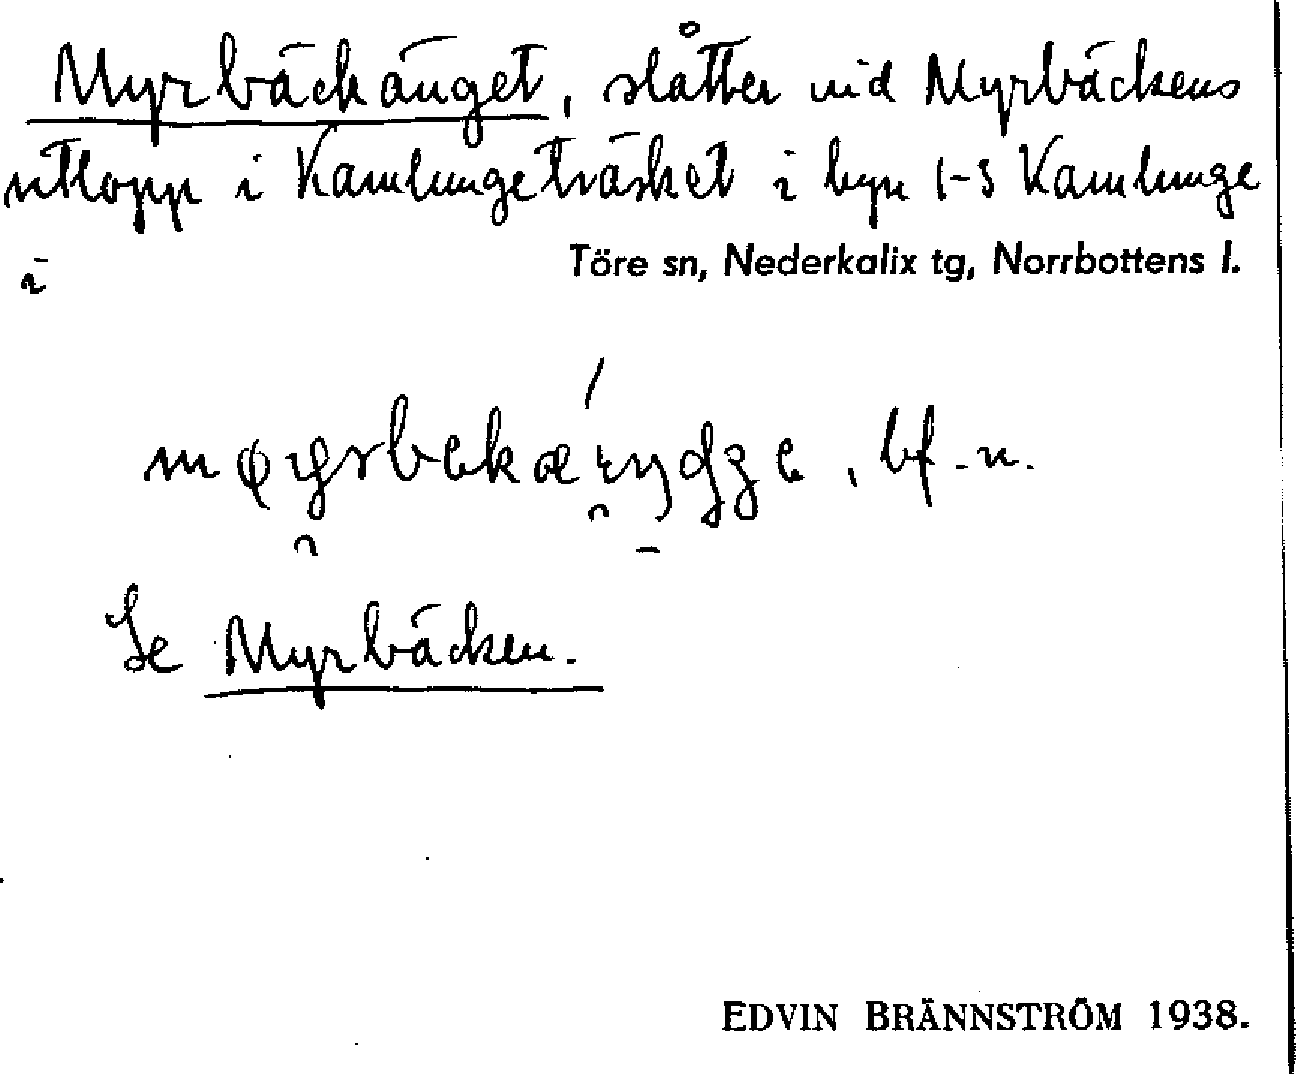 Myrbäckänget, slåtter vid Myrbäckens
utlopp i Kamlungeträsket i byn 1-3 Kamlunge
i Töre sn, Nederkalix tg, Norrbottens l.
bf. n.
Se Myrbäcken.
EDVIN BRÄNNSTRÖM 1938.